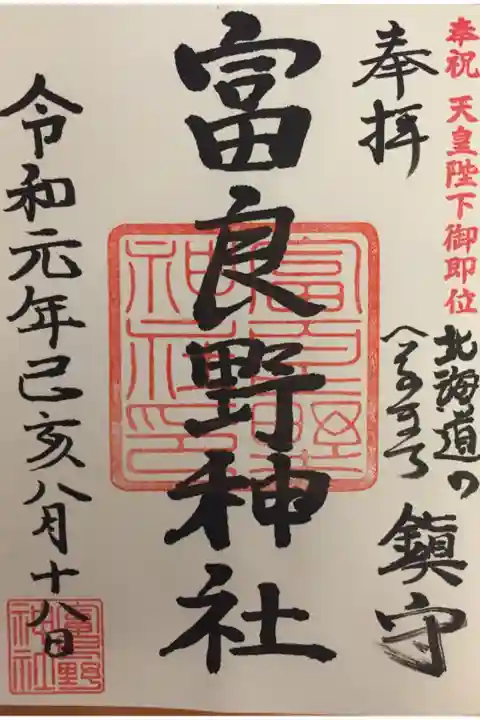 奉祝 天皇陛下御即位
奉拝
北海道の
へそのまち
鎮守
富良野神社
富良野神社印
令和元年己亥八月十八日
富良野神社